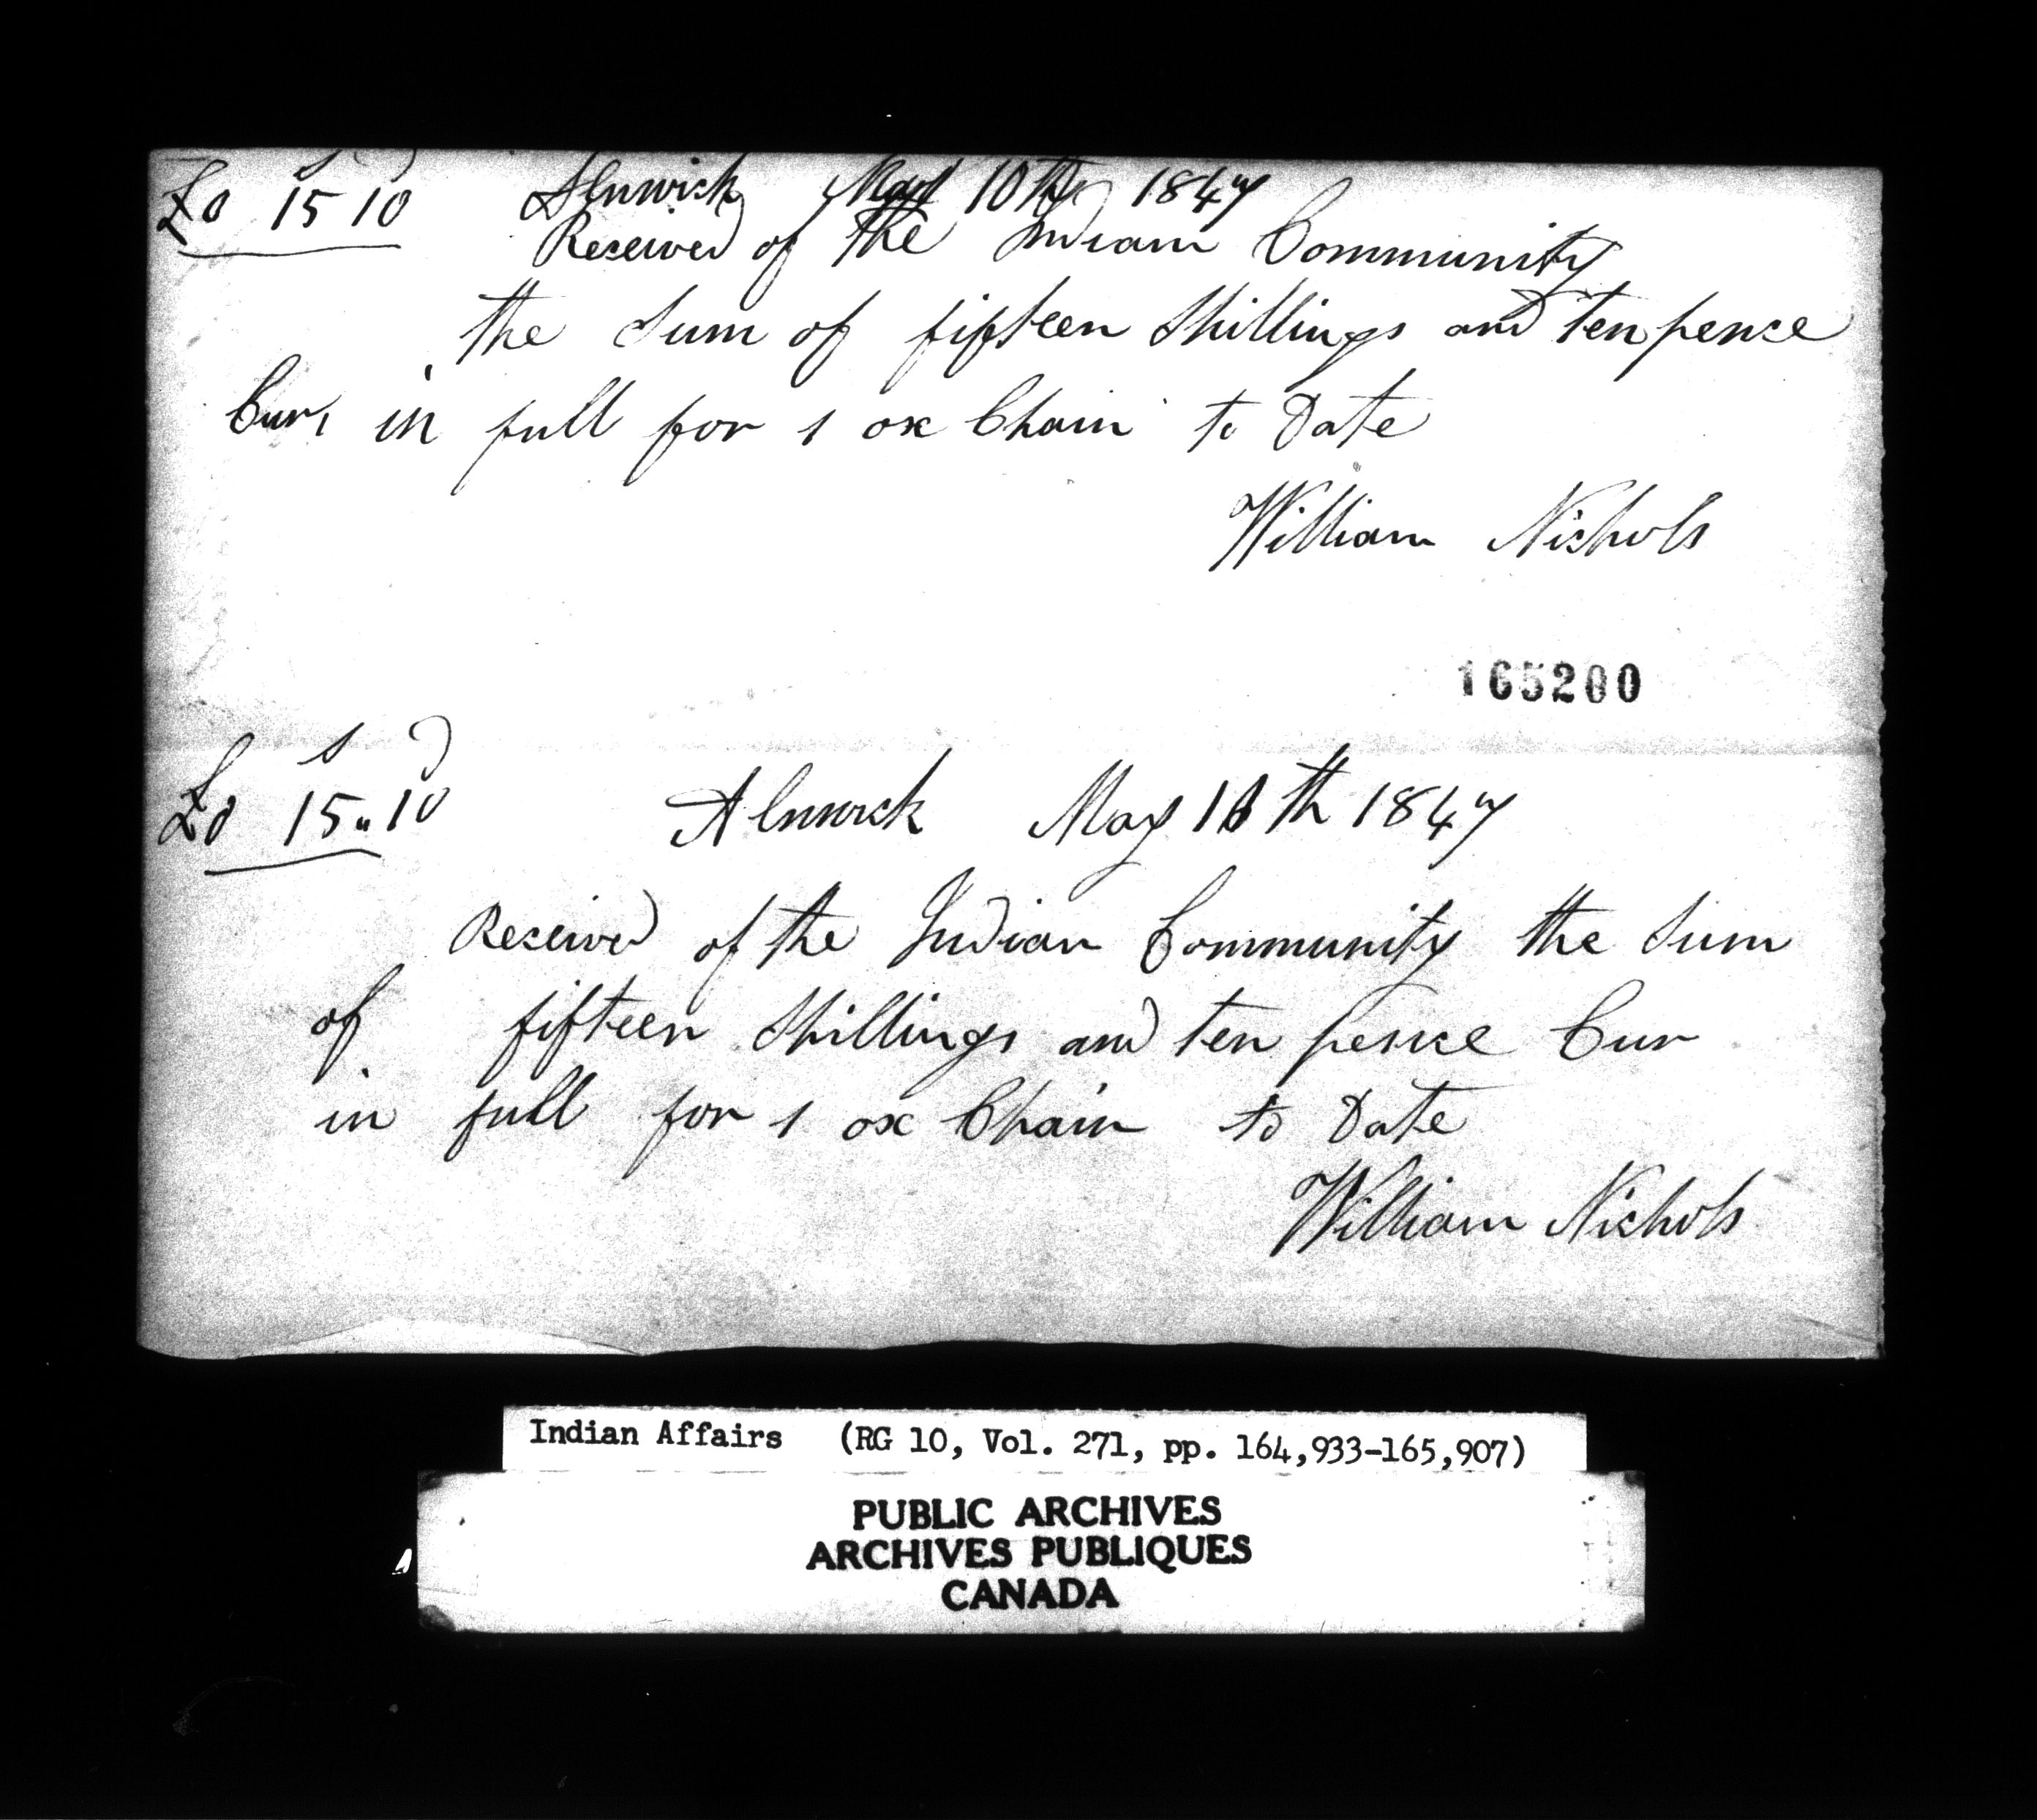 s d
£0 15 10 Alnwick May 10th 1847
Received of the Indian Community
the Sum of fifteen Shillings and ten pence
Cur, in full for 1 ox Chain to Date
William Nichols
165200
s d
£0 15 " 10 Alnwick May 10th 1847
Received of the Indian Community the Sum
of fifteen Shillings and ten pence Cur
in full for 1 ox Chain to Date
William Nichols
Indian Affairs (RG 10, Vol. 271, pp. 164,933-165,907)
PUBLIC ARCHIVES
ARCHIVES PUBLIQUES
CANADA